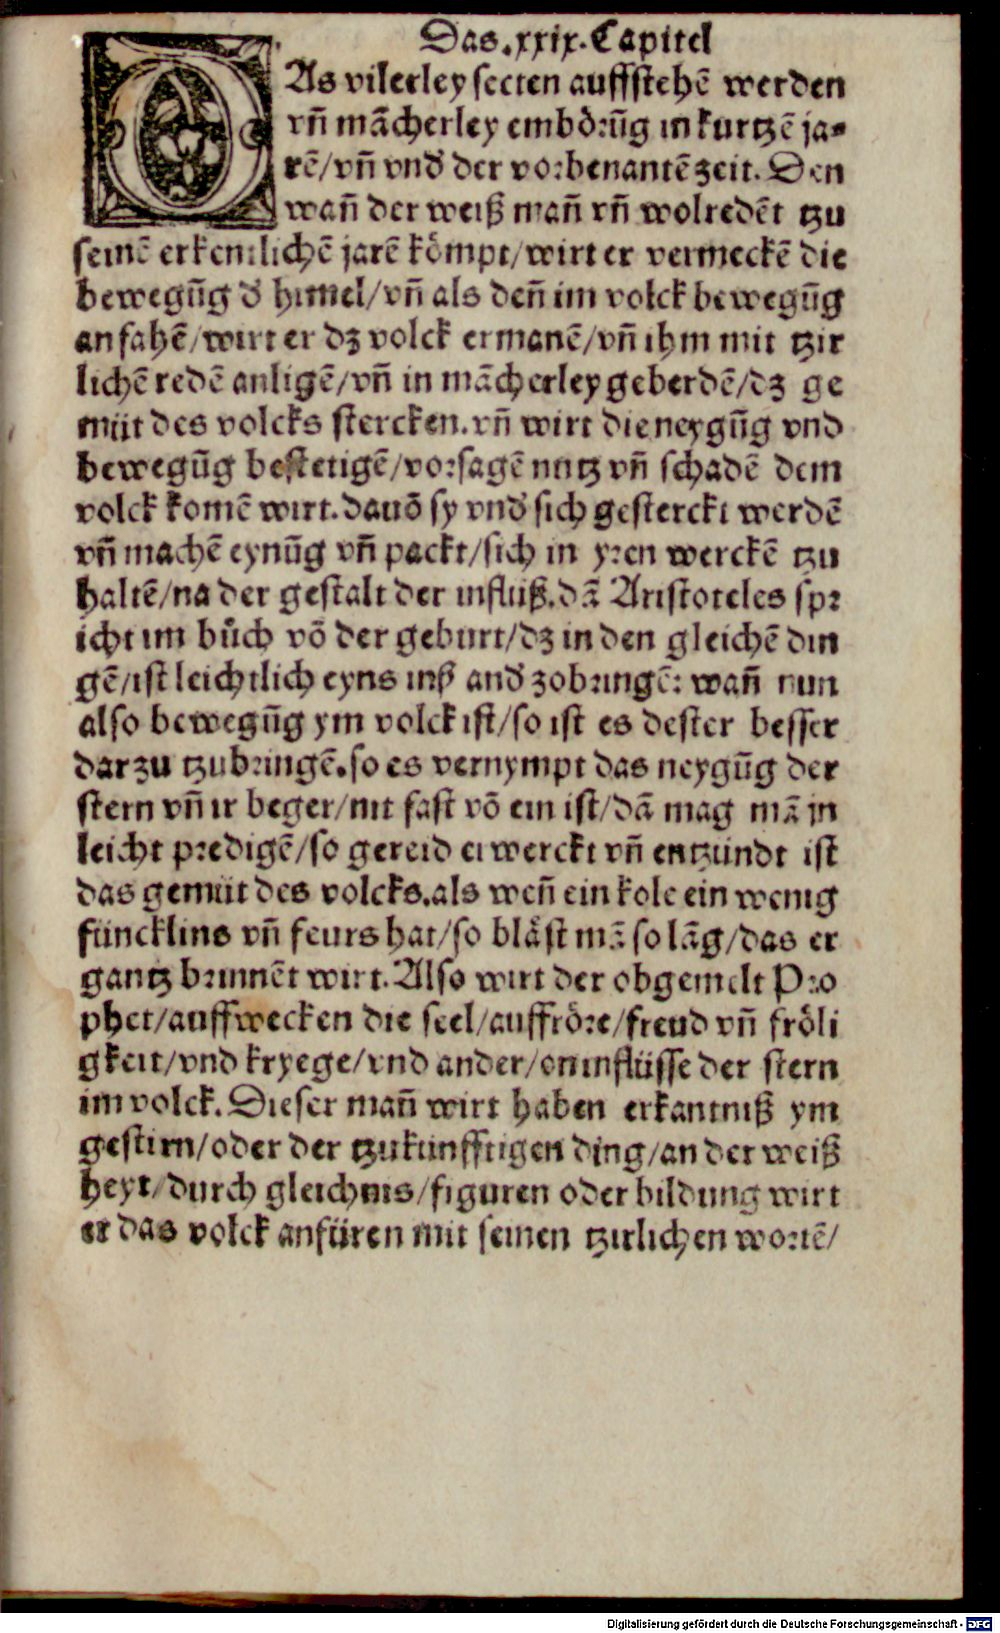 Das.xxix.Capitel
DAs vilerley secten auffstehē werden
vn̄ mācherley embörūg in kurtzē ja-
rē/vn̄ vnd̕ der vorbenantē zeit. Den
wan̄ der weiß man̄ vn̄ wolredēt tzu
seinē erkentlichē jarē kömpt/wirt er vermeckē die
bewegūg d̕ himel/vn̄ als den̄ im volck bewegūg
anfahē/wirt er dz volck ermanē/vn̄ ihm mit tzir
lichē redē anligē/vn̄ in mācherley geberdē/dz ge
müt des volcks stercken.vn̄ wirt die neygūg vnd
bewegūg bestetigē/vorsagē nutz vn̄ schadē dem
volck komē wirt.dauō sy vnd̕ sich gesterckt werdē
vn̄ machē eynūg vn̄ packt/sich in yren werckē tzu
haltē/na der gestalt der influß.dā Aristoteles spr
icht im bůch vō der geburt/dz in den gleichē din
gē/ist leichtlich eyns inß and̕ zobringē: wan̄ nun
also bewegūg ym volck ist/so ist es dester besser
darzu tzubringē.so es vernympt das neygūg der
stern vn̄ ir beger/nit fast vō ein ist/dā mag mā jn
leicht predigē/so gereid erwerckt vn̄ entzündt ist
das gemüt des volcks.als wen̄ ein kole ein wenig
füncklins vn̄ feurs hat/so bläst mā so lāg/das er
gantz brinnēt wirt.Also wirt der obgemelt Pro
phet/auffwecken die seel/auffröre/freud vn̄ fröli
gkeit/vnd kryege/vnd ander/on inflüsse der stern
im volck.Dieser man̄ wirt haben erkantniß ym
gestirn/oder der tzukunfftigen ding/an der weiß
heyt/durch gleichnis/figuren oder bildung wirt
er das volck anfüren mit seinen tzirlichen wortē/
Digitalisierung gefördert durch die Deutsche Forschungsgemeinschaft - DFG